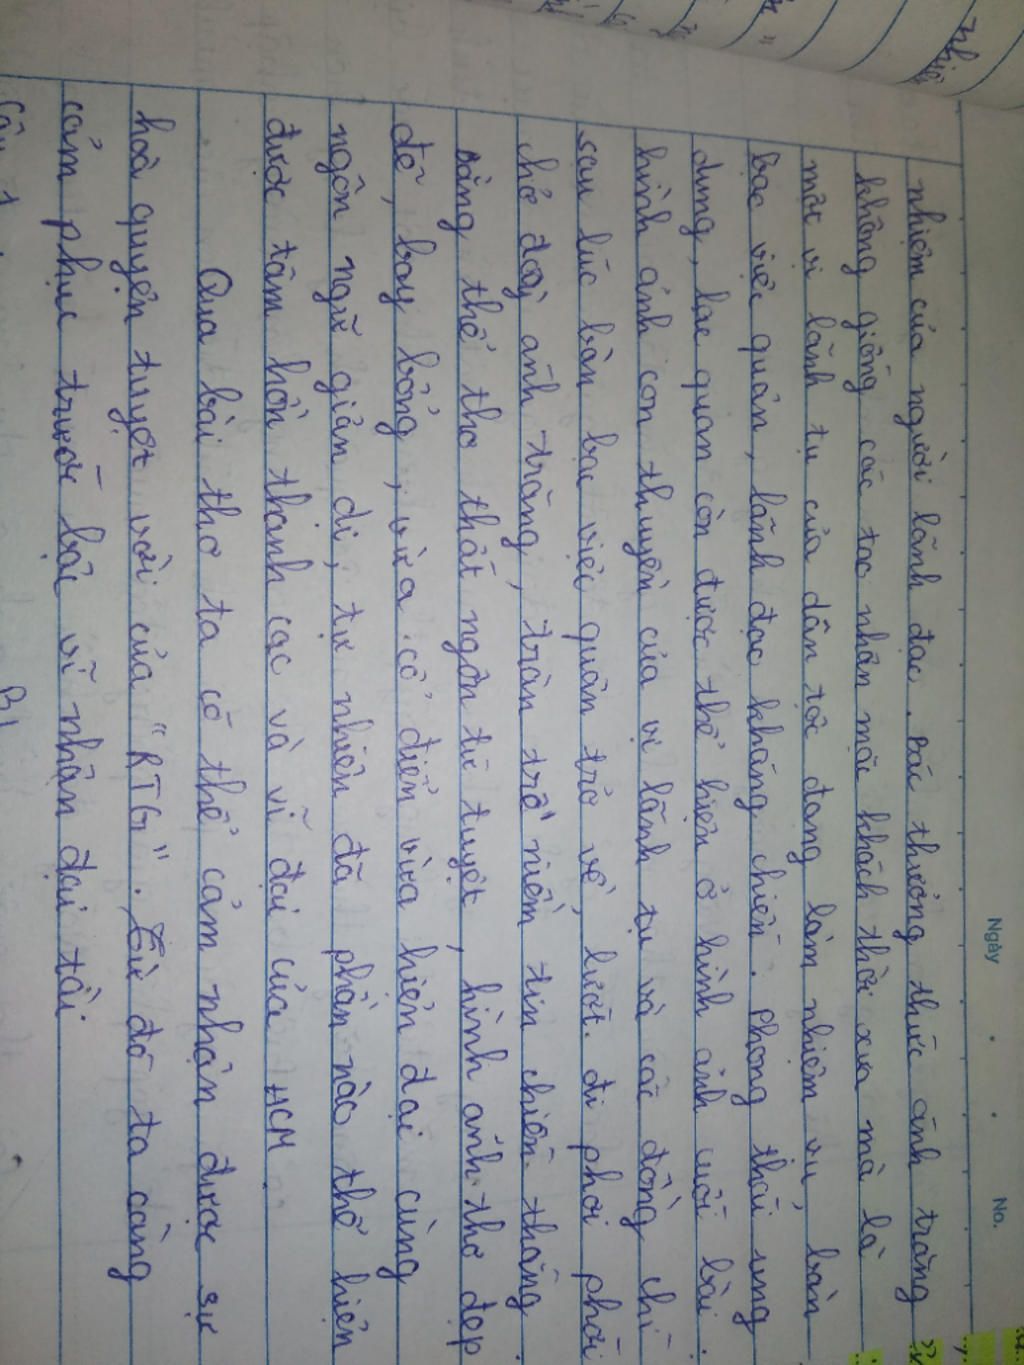 Ngày
No.
nhiệm của người lãnh đạo. Bác thưởng thức ánh trăng
không giống các tao nhân mặc khách thời xưa mà là
một vị lãnh tụ của dân tộc đang làm nhiệm vụ, bàn
bạc việc quân, lãnh đạo kháng chiến. Phong thái ung
dung, lạc quan còn được thể hiện ở hình ảnh cuối bài.
hình ảnh con thuyền của vị lãnh tụ và các đồng chí
sau lúc bàn bạc việc quân trở về, lướt đi phơi phới
chở đầy ánh trăng, tràn trề niềm tin chiến thắng.
Bằng thể thơ thất ngôn tứ tuyệt, hình ảnh thơ đẹp
đẽ, bay bổng, vừa cổ điển vừa hiện đại cùng
ngôn ngữ giản dị, tự nhiên đã phần nào thể hiện
được tâm hồn thanh cao và vĩ đại của HCM.
Qua bài thơ ta có thể cảm nhận được sự
hoà quyện tuyệt vời của "RTG". Từ đó ta càng
cảm phục trước bậc vĩ nhân đại tài.